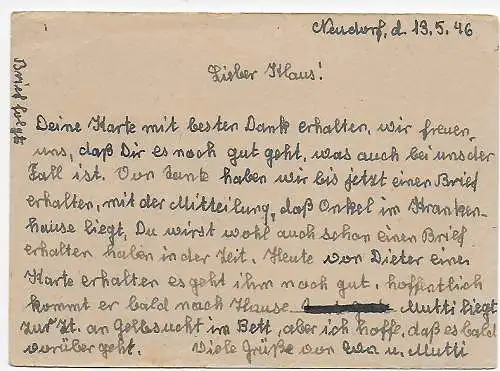 Neudorf, d. 13.5.46
Brief folgt
Lieber Klaus!
Deine Karte mit besten Dank erhalten, wir freuen
uns, daß Dir es noch gut geht, was auch bei uns der
Fall ist. Von Tante haben wir bis jetzt einen Brief
erhalten, mit der Mitteilung, daß Onkel im Kranken-
hause liegt, Du wirst wohl auch schon einen Brief
erhalten haben in der Zeit. Heute von Dieter eine
Karte erhalten es geht ihm noch gut, hoffentlich
kommt er bald nach Hause Mutti liegt
zur Zt. an Gelbsucht im Bett, aber ich hoffe, daß es bald
vorüber geht. Viele Grüße von u. Mutti